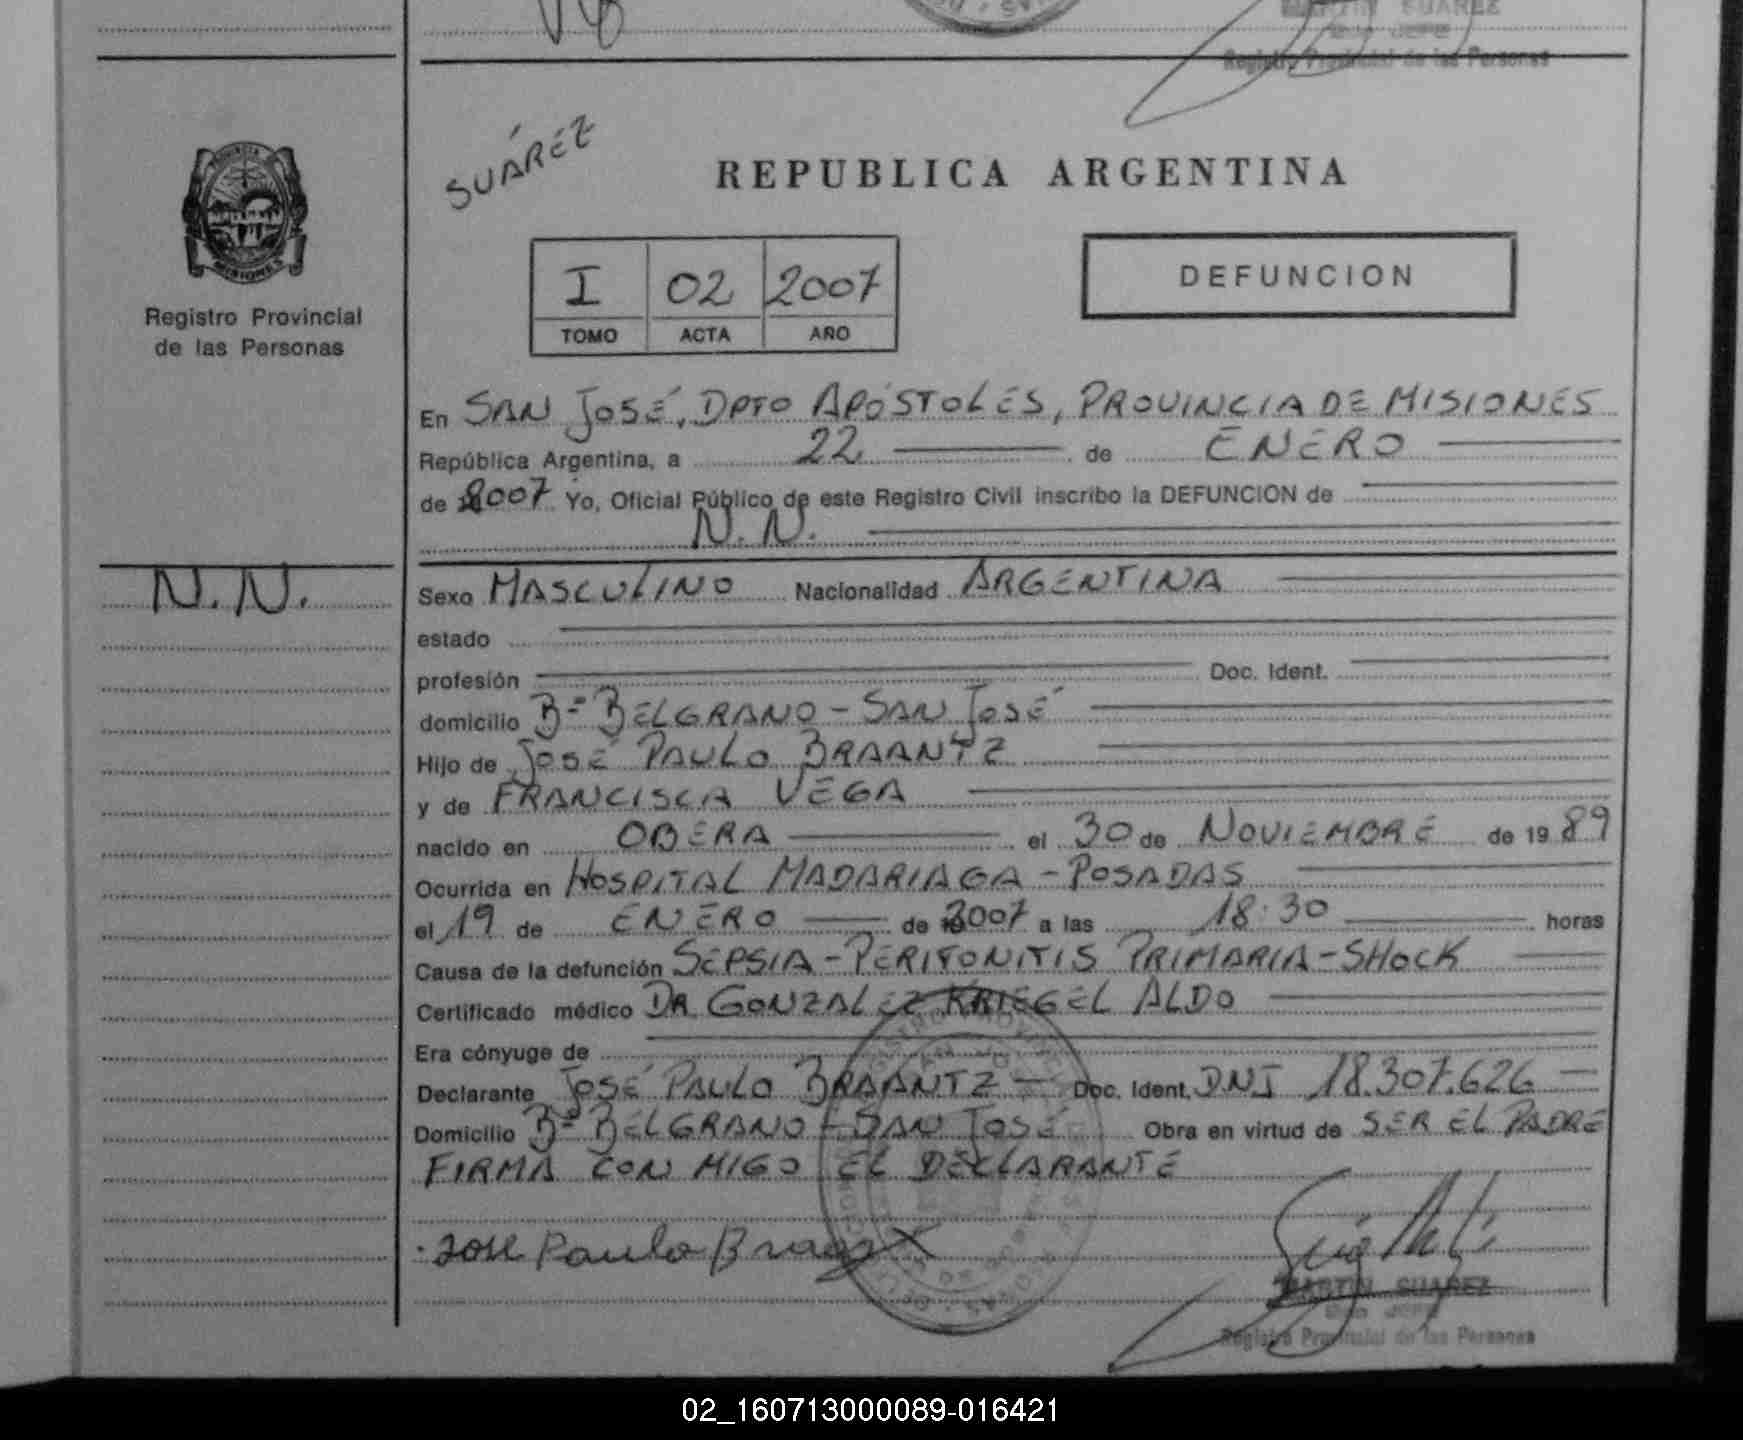 MARTIN SUAREZ
JEFE
Registro Provincial de las Personas
SUÁREZ
REPUBLICA ARGENTINA
PROVINCIA DE
MISIONES
Registro Provincial
de las Personas
I 02 2007
TOMO ACTA AÑO
DEFUNCION
En SAN JOSÉ, DPTO APÓSTOLES, PROVINCIA DE MISIONES
República Argentina, a 22 de ENERO
de 2007 Yo, Oficial Público de este Registro Civil inscribo la DEFUNCION de
N.N.
N.N.
Sexo MASCULINO Nacionalidad ARGENTINA
estado
profesión Doc. Ident.
domicilio Bº BELGRANO - SAN JOSÉ
Hijo de JOSÉ PAULO BRAANTZ
y de FRANCISCA VEGA
nacido en OBERA el 30 de NOVIEMBRE de 1989
Ocurrida en HOSPITAL MADARIAGA - POSADAS
el 19 de ENERO de 2007 a las 18:30 horas
Causa de la defunción SEPSIA - PERITONITIS PRIMARIA - SHOCK
Certificado médico DR GONZALEZ KRIEGEL ALDO
Era cónyuge de
Declarante JOSÉ PAULO BRAANTZ - Doc. Ident. DNI 18.307.626 -
Domicilio Bº BELGRANO - SAN JOSÉ Obra en virtud de SER EL PADRE
FIRMA CON MIGO EL DECLARANTE
José Paulo
MARTIN SUAREZ
JEFE
Registro Provincial de las Personas
02_160713000089-016421